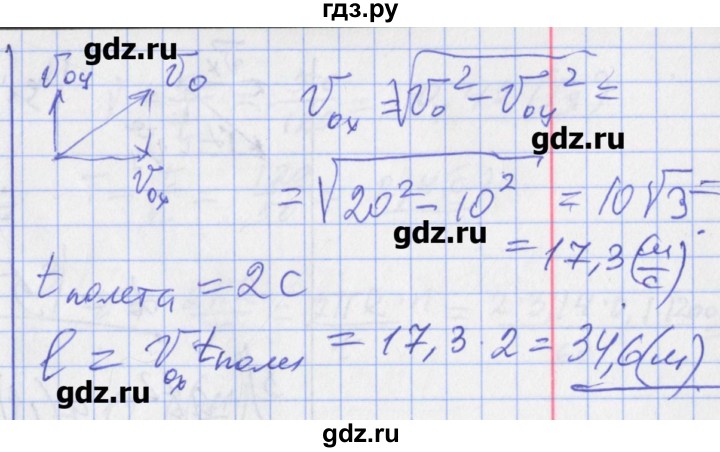 гдз.ру
gdz.ru
v₀y v₀
v₀ₓ
v₀ₓ = √(v₀² − v₀y²) =
gdz.ru
= √(20² − 10²) = 10√3 =
gdz.ru
= 17,3 (м/с)
t полета = 2 с
gdz.ru
l = v₀ₓ t полет = 17,3 · 2 = 34,6 (м)
gdz.ru
gdz.ru